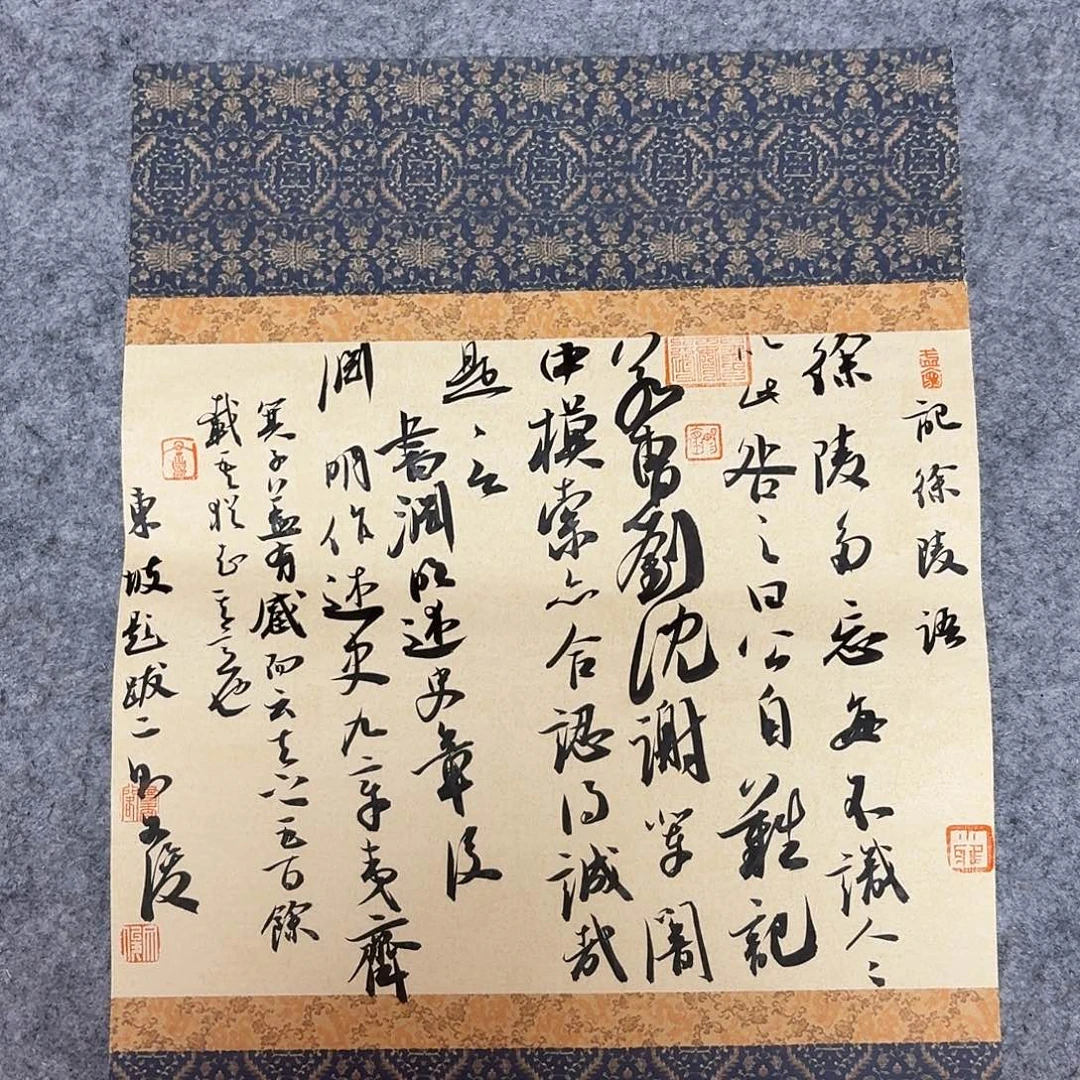 記徐陵語
徐陵多忘每不識人〻
以此咎之曰公自難記
若曹劉沈謝輩闇
中模索亦合認得誠哉
是言
書淵明述史章後
淵明作述史九章夷齊
箕子蓋有感而云去之五百餘
載吾猶知其意也
東坡題跋二則